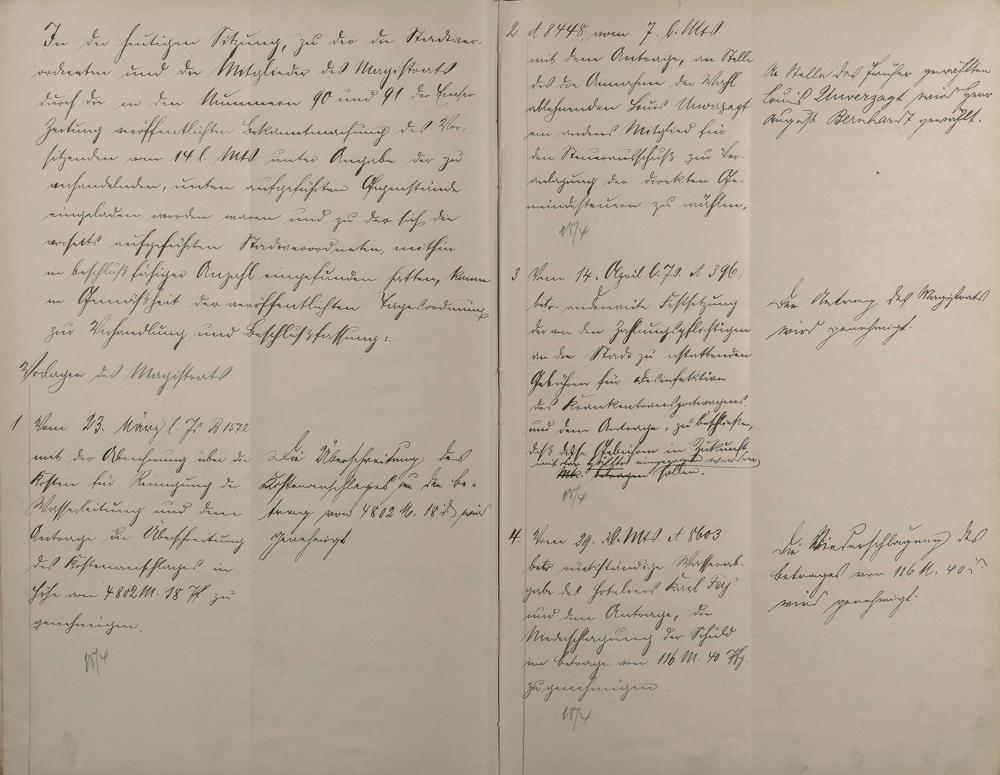 In der heutigen Sitzung, zu der die Stadtver-
ordneten und die Mitglieder des Magistrats
durch die in den Nummern 90 und 91 der Emser
Zeitung veröffentlichten Bekanntmachung des Vor-
sitzenden vom 14 l. Mts unter Angabe der zu
verhandelnden, unten aufgeführten Gegenstände
eingeladen worden waren und zu der sich die
vorseits aufgeführten Stadtverordneten, mithin
in beschlußfähiger Anzahl eingefunden hatten, kamen
in Gemäßheit der veröffentlichten Tagesordnung
zur Verhandlung und Beschlußfassung:
Vorlagen des Magistrats
1 Vom 23. März l. Js B 1572
mit der Abrechnung über die
Kosten für Reinigung der
Wasserleitung und dem
Antrage die Überschreitung
des Kostenanschlages in
Höhe von 4802 M. 18 Pf. zu
genehmigen.
18/4
Die Überschreitung des
Kostenanschlages um den Be-
trag von 4802 M. 18 d wird
genehmigt
2 A 8448 vom 7. l. Mts
mit dem Antrage, an Stelle
des die Annahme der Wahl
ablehnenden Louis Unverzagt
ein anderes Mitglied für
den Steuerausschuß zur Ver-
anlagung der direkten Ge-
meindesteuern zu wählen.
18/4
An Stelle des früher gewählten
Louis Unverzagt wird Herr
August Bernhardt gewählt.
3 Vom 14. April l. Js. A 396,
betr. anderweite Festsetzung
der von den Zahlungspflichtigen
an die Stadt zu erstattenden
Gebühren für Desinfektion
des Krankentransportwagens
und dem Antrage, zu beschließen,
daß diese Gebühren in Zukunft
mit der Hälfte eingezogen werden
Mk. betragen sollen.
18/4
Der Antrag des Magistrats
wird genehmigt.
4. Vom 29. v. Mts. A 8603
betr. rückständige Wasserab-
gabe des Hoteliers Karl
und dem Antrage, die
Niederschlagung der Schuld
im Betrage von 116 M. 40 Pfg.
zu genehmigen
18/4
Die Niederschlagung des
Betrages von 116 M. 40 d
wird genehmigt.